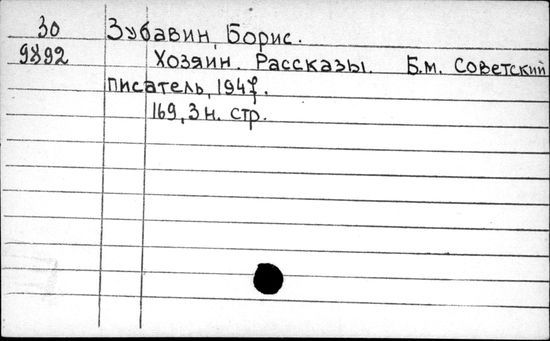 30 Зубавин, Борис.
9892 Хозяин. Рассказы. Б.м. Советский
писатель, 1947.
169, 3 н. стр.